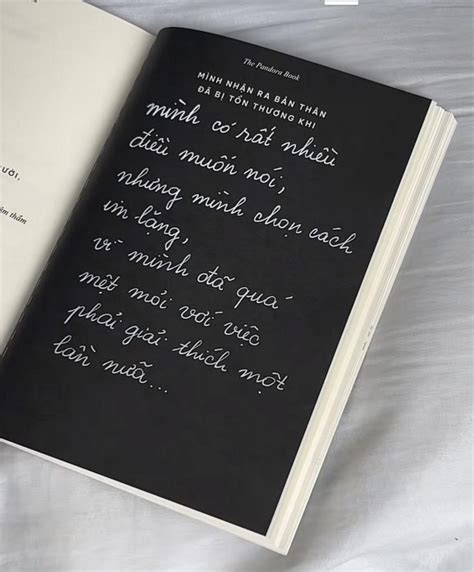 The Pandora Book
MÌNH NHẬN RA BẢN THÂN
ĐÃ BỊ TỔN THƯƠNG KHI
mình có rất nhiều
điều muốn nói,
nhưng mình chọn cách
im lặng,
vì mình đã quá
mệt mỏi với việc
phải giải thích một
lần nữa...